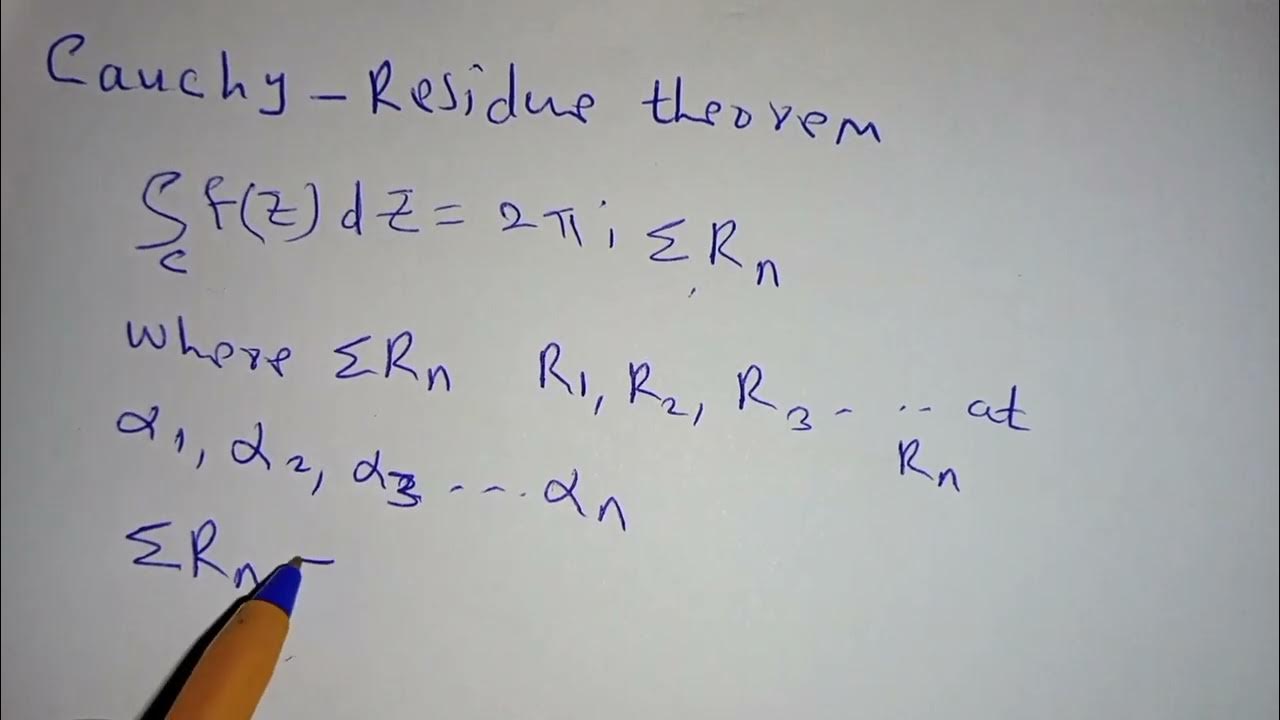 Cauchy - Residue theorem
∫c f(z) dz = 2πi ΣRn
where ΣRn R1, R2, R3 - .. at
Rn
α1, α2, α3 ---.. αn
ΣRn -